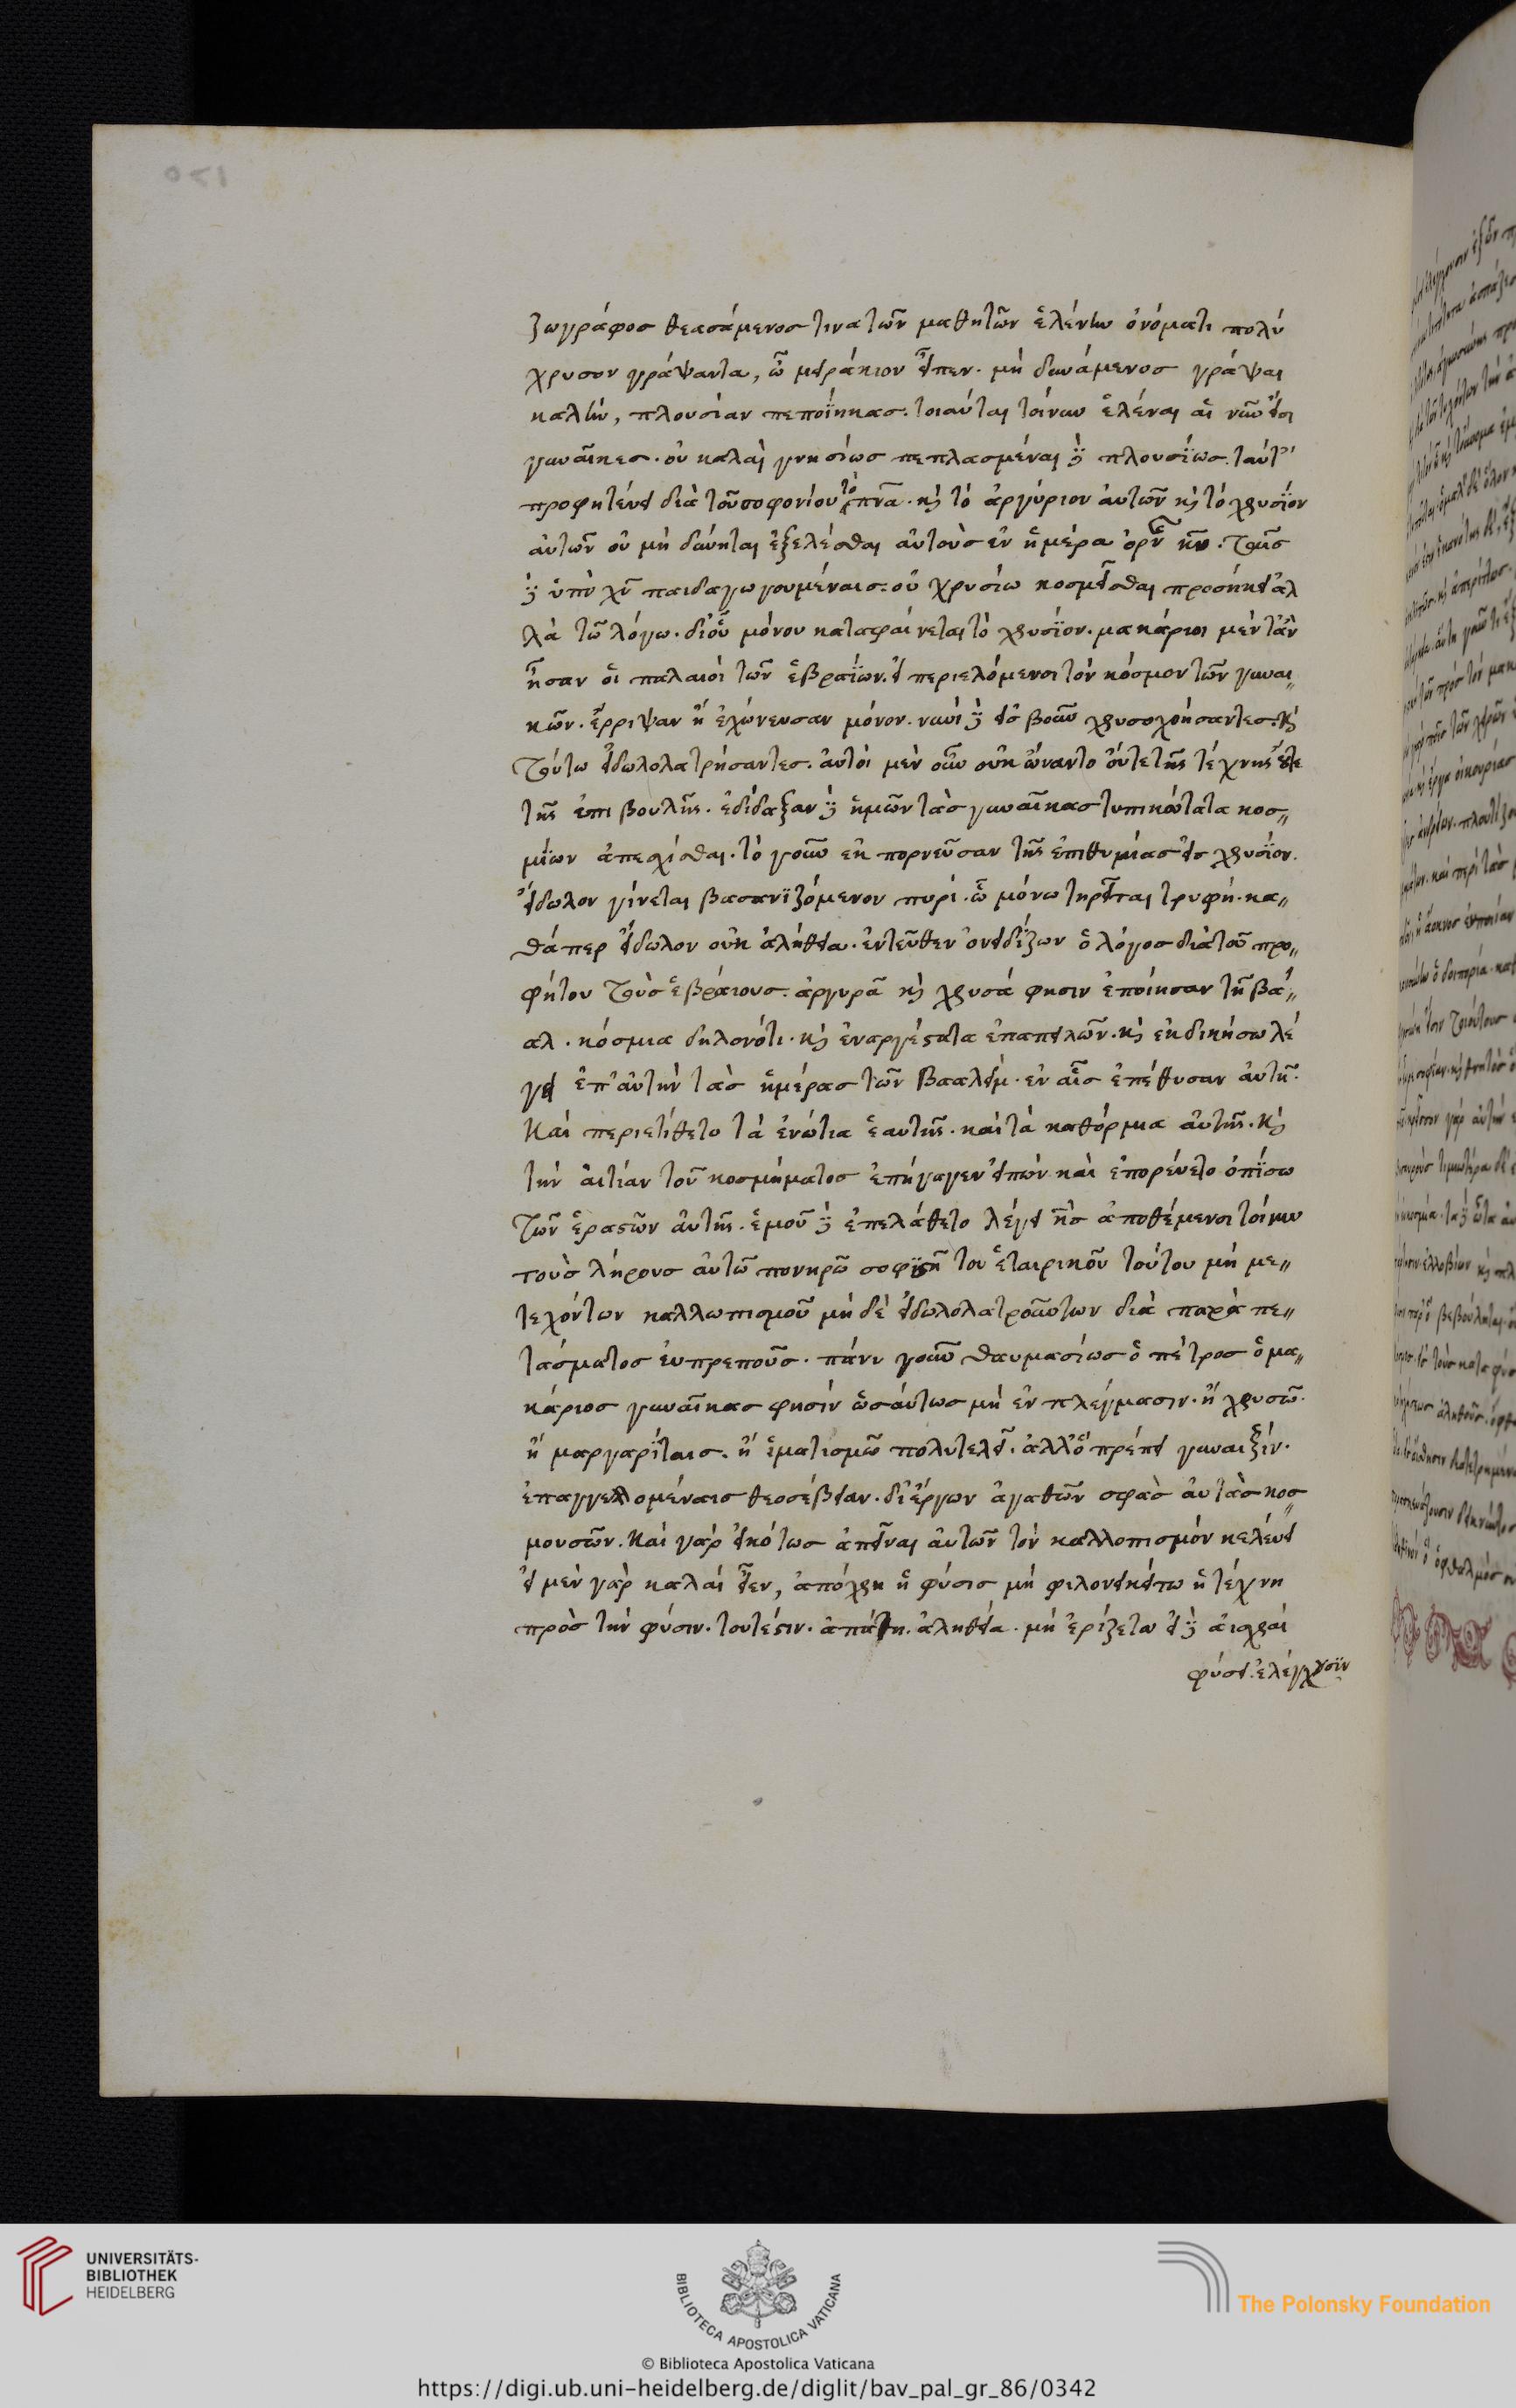 ζωγράφος θεασάμενος τινα τῶν μαθητῶν ἑλένην ὀνόματι πολύ
χρυσον γράψαντα, ὦ μειράκιον εἶπεν· μὴ δυνάμενος γράψαι
καλὴν, πλουσίαν πεποίηκας. τοιαῦται τοίνυν ἑλέναι αἱ νῦν εἰσι
γυναῖκες. οὐ καλαὶ γνησίως πεπλασμέναι δὲ πλουσίως. ταύτ
προφητεύει διὰ τοῦ σοφονίου τὸ πνᾶ. κὶ τὸ ἀργύριον αὐτῶν κὶ τὸ χρυσίον
αὐτῶν οὐ μὴ δύνηται ἐξελέσθαι αὐτοὺς ἐν ἡμέρα ὀργῆς κῦ. ταῖς
δὲ ὑπὸ χῦ παιδαγωγουμέναις. οὐ χρυσίω κοσμεῖσθαι προσήκει ἀλ
λὰ τῶ λόγω. δι' οὗ μόνου καταφαίνεται τὸ χρυσίον. μακάριοι μὲν τἂν
ἦσαν οἱ παλαιοὶ τῶν ἑβραίων. εἰ περιελόμενοι τὸν κόσμον τῶν γυναι
κῶν. ἔρριψαν ἢ ἐχώνευσαν μόνον. νυνὶ δὲ εἰς βοῦν χρυσοχοήσαντες. κὶ
τούτω εἰδωλολατρήσαντες. αὐτοὶ μὲν οὖν οὐκ ὤναντο οὔτε τῆς τέχνης οὔτε
τῆς ἐπιβουλῆς. ἐδίδαξαν δὲ ἡμῶν τὰς γυναῖκας τυπικώτατα κοσ
μίων ἀπεχίσθαι. τὸ γοῦν ἐκπορνεῦσαν τῆς ἐπιθυμίας εἰς χρυσίον.
εἴδωλον γίνεται βασανιζόμενον πυρί. ὧ μόνω τηρεῖται τρυφή. κα
θάπερ εἴδωλον οὐκ ἀλήθεια. ἐντεῦθεν ὀνειδίζων ὁ λόγος διὰ τοῦ προ
φήτου τοὺς ἑβραίους. ἀργυρᾶ κὶ χρυσά φησιν ἐποίησαν τῆ βά
αλ. κόσμια δηλονότι. κὶ ἐναργέστατα ἐπαπειλῶν. κὶ ἐκδικήσω λέ
γει ἐπ' αὐτὴν τὰς ἡμέρας τῶν βααλείμ. ἐν αἷς ἐπέθυσαν αὐτῆ.
καὶ περιετίθετο τὰ ἐνώτια ἑαυτῆς. καὶ τὰ καθόρμια αὐτῆς. κὶ
τὴν αἰτίαν τοῦ κοσμήματος ἐπήγαγεν εἰπὼν καὶ ἐπορεύετο ὀπίσω
τῶν ἐραστῶν αὐτῆς. ἐμοῦ δὲ ἐπελάθετο λέγει κ͞ς ἀποθέμενοι τοίνυν
τοὺς λήρους αὐτῶ πονηρῶ σοφιστῆ του ἑταιρικοῦ τούτου μὴ με
τεχόντων καλλωπισμοῦ μὴ δὲ εἰδωλολατρούντων διὰ παραπε
τάσματος εὐπρεποῦς. πάνυ γοῦν θαυμασίως ὁ πέτρος ὁ μα
κάριος γυναῖκας φησὶν ὡσαύτως μὴ ἐν πλέγμασιν. ἢ χρυσῶ.
ἢ μαργαρίταις. ἢ ἱματισμῶ πολυτελεῖ. ἀλλ' ὃ πρέπει γυναιξὶν.
ἐπαγγελλομέναις θεοσέβειαν. δι' ἔργων ἀγαθῶν σφὰς αὐτὰς κοσ
μουσῶν. καὶ γὰρ εἰκότως ἀπεῖναι αὐτῶν τὸν καλλοπισμὸν κελεύει
εἰ μὲν γὰρ καλαὶ εἶεν, ἀπόχρη ἡ φύσις μὴ φιλονεικείτω ἡ τέχνη
πρὸς τὴν φύσιν. τουτέστιν. ἀπάτη. ἀληθεία. μὴ ἐριζέτω εἰ δὲ αἰσχραὶ
φύσει. ἐλέγχουσιν
UNIVERSITÄTS-
BIBLIOTHEK
HEIDELBERG
BIBLIOTECA APOSTOLICA VATICANA
The Polonsky Foundation
© Biblioteca Apostolica Vaticana
https://digi.ub.uni-heidelberg.de/diglit/bav_pal_gr_86/0342